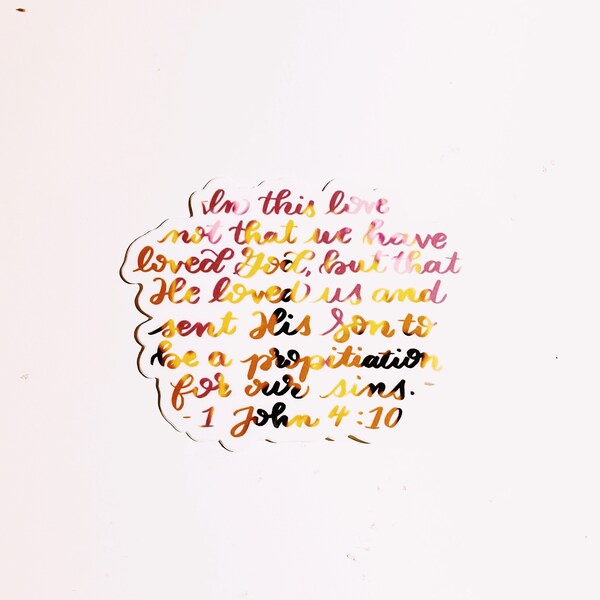 In this love
not that we have
loved God, but that
He loved us and
sent His Son to
be a propitiation
for our sins.
- 1 John 4:10